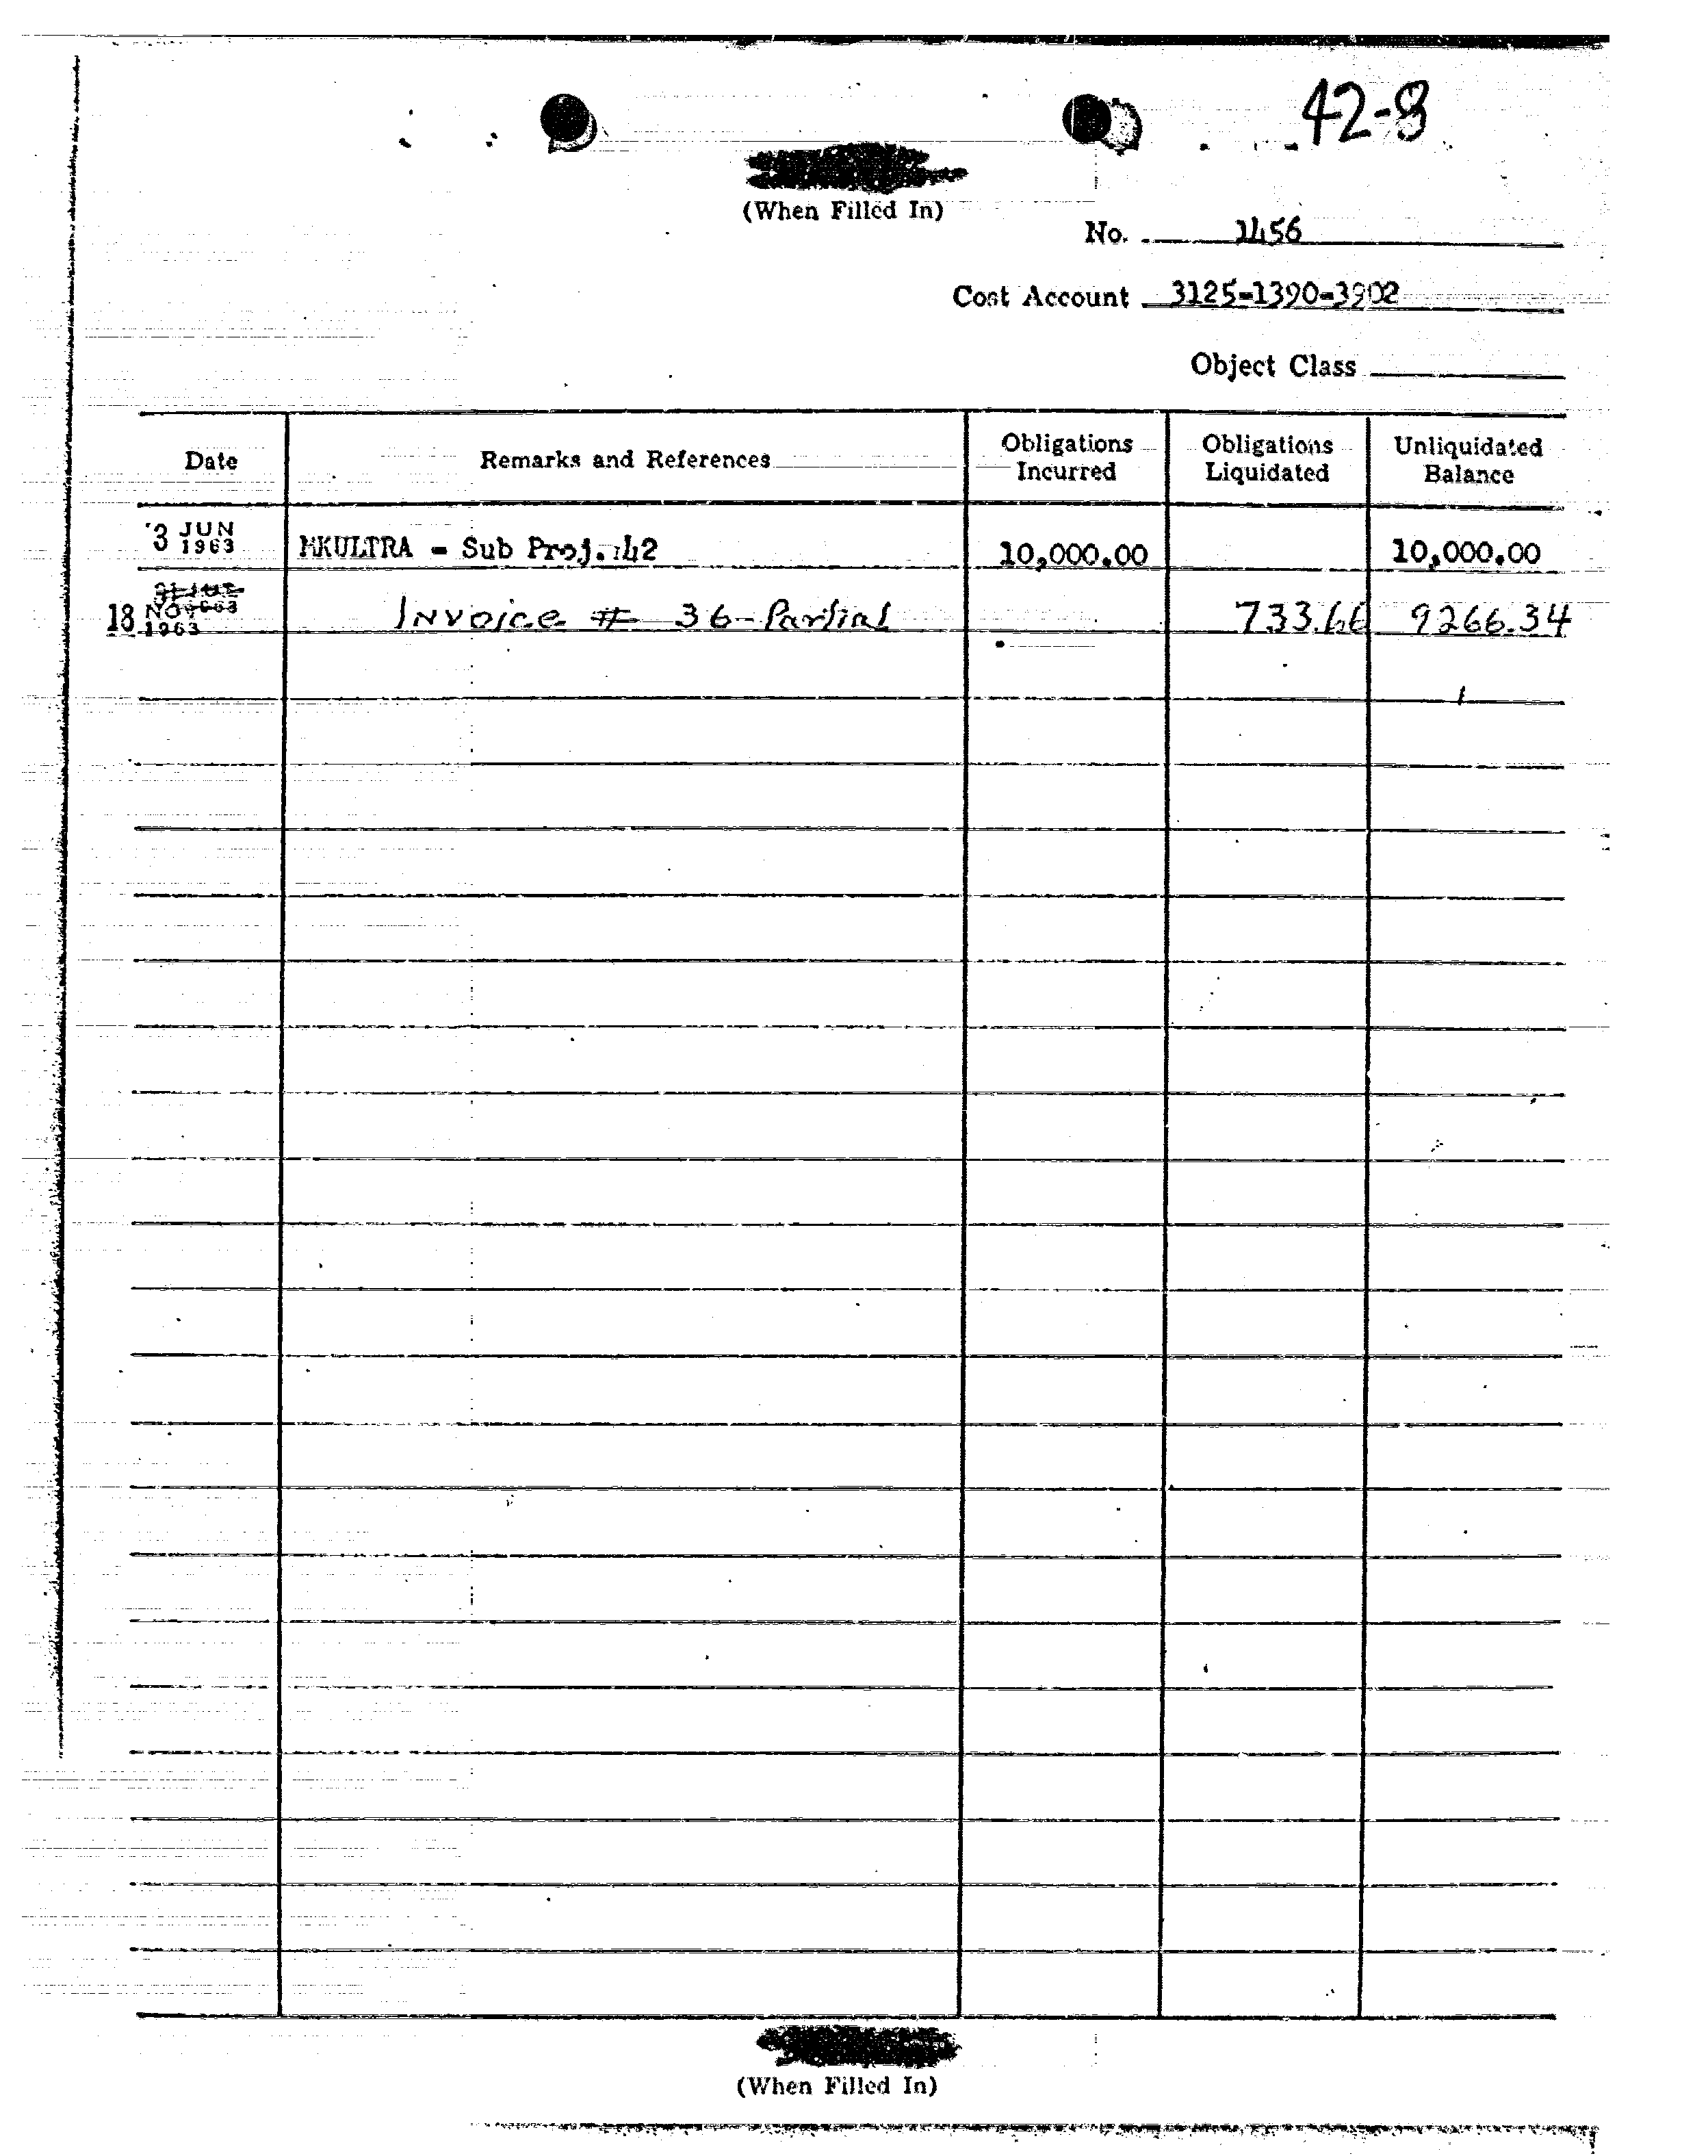 42-8
(When Filled In)
No. 1456
Cost Account 3125-1390-3902
Object Class
Date Remarks and References Obligations Incurred Obligations Liquidated Unliquidated Balance
3 JUN 1963 MKULTRA - Sub Proj. 42 10,000.00 10,000.00
18 NOV 1963 Invoice # 36-Partial 733.66 9266.34
(When Filled In)